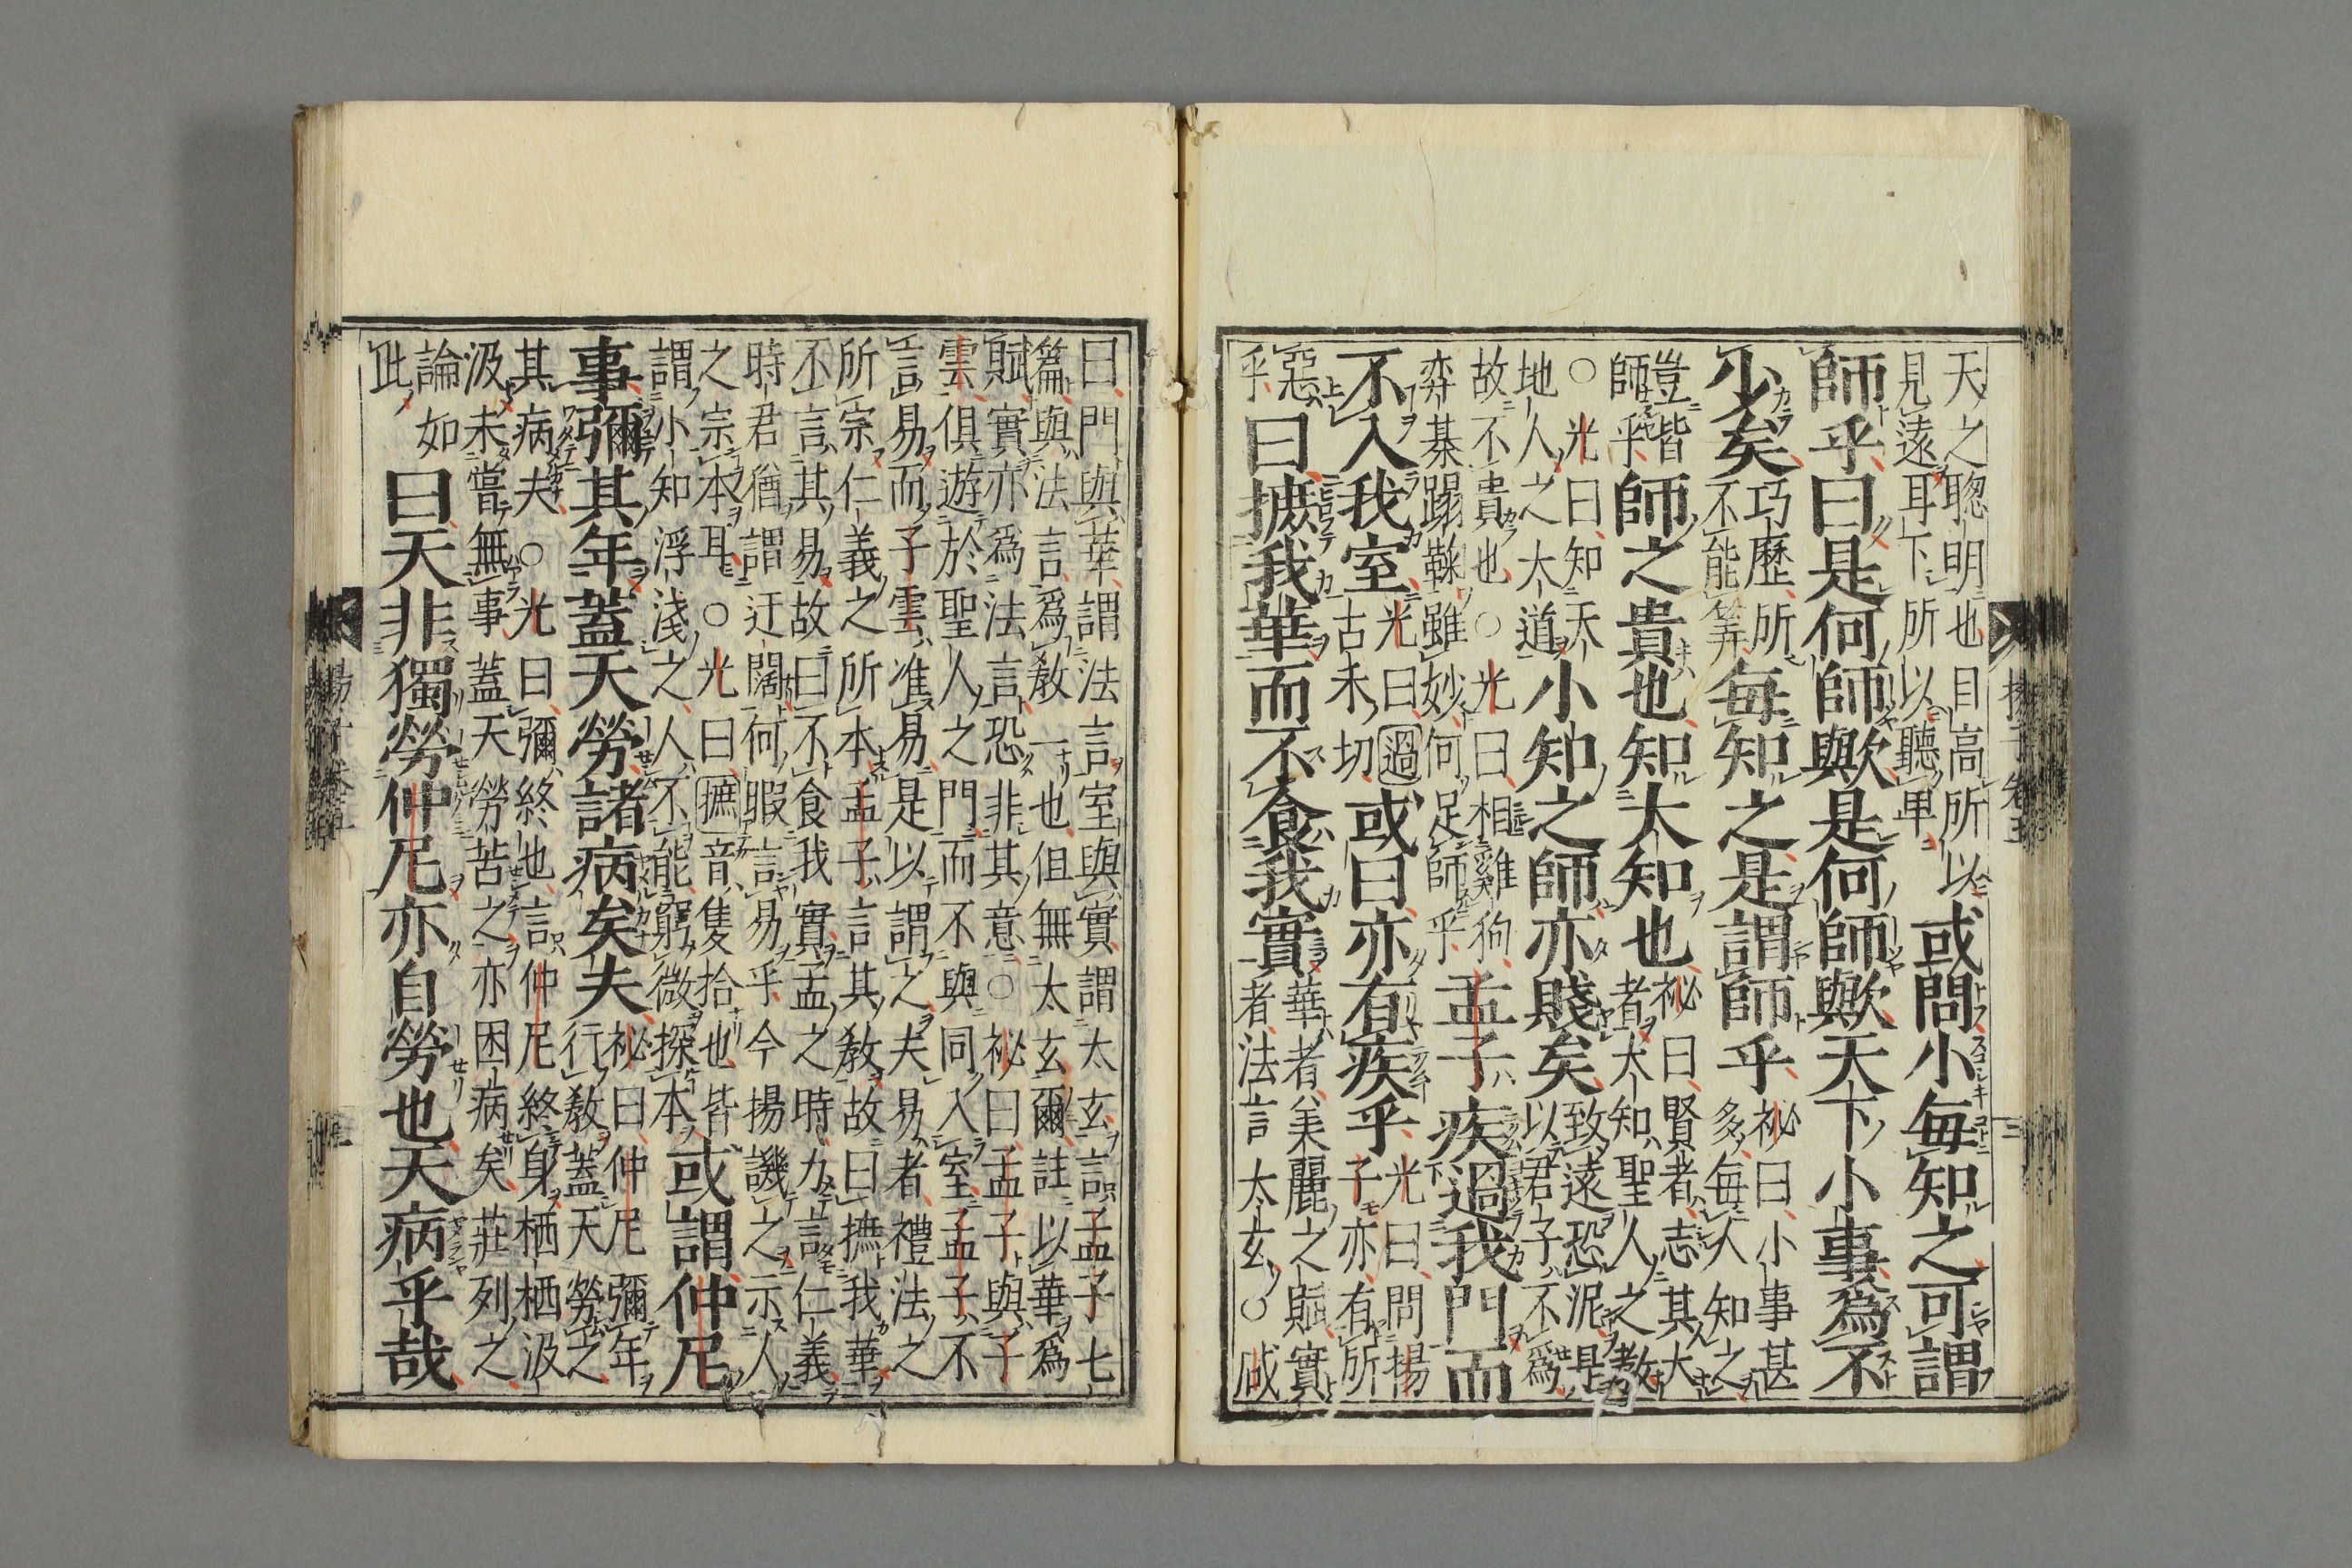 天之聰明也目高所以
見遠耳下所以聽卑
或問小每知之可謂
師乎曰是何師歟是何師歟天下小事爲不
少矣
巧歷所
不能筭
每知之是謂師乎
祕曰小事甚
多每人知之
豈皆
師乎
師之貴也知大知也
祕曰賢者志其大
者大知聖人之教
○光曰知天
地人之大道
小知之師亦賤矣
致遠恐泥是
以君子不爲
故不貴也○光曰相雞狗
弈棊蹋鞠雖妙何足師乎
孟子疾過我門而
不入我室
光曰過
古禾切
或曰亦有疾乎
光曰問揚
子亦有所
惡
乎
曰摭我華而不食我實
華者美麗之賦實
者法言太玄○咸
曰門與華謂法言室與實謂太玄言孟子七
篇與法言爲教一也但無太玄爾註以華爲
賦實亦爲法言恐非其意○祕曰孟子與子
雲俱遊於聖人之門而不與同入室孟子不
言易而子雲准易是以謂之夫易者禮法之
所宗仁義之所本孟子言其教故曰摭我華
不言其易故曰不食我實孟之時力言仁義
時君猶謂迂闊何暇言易乎今揚譏之示人
之宗本耳○光曰摭音隻拾也皆
謂小知浮淺之人不能窮微探本
或謂仲尼
事彌其年蓋天勞諸病矣夫
祕曰仲尼彌年
行教蓋天勞之
其病夫○光曰彌終也言仲尼終身栖栖汲
汲未嘗無事蓋天勞苦之亦困病矣莊列之
論如
此
曰天非獨勞仲尼亦自勞也天病乎哉